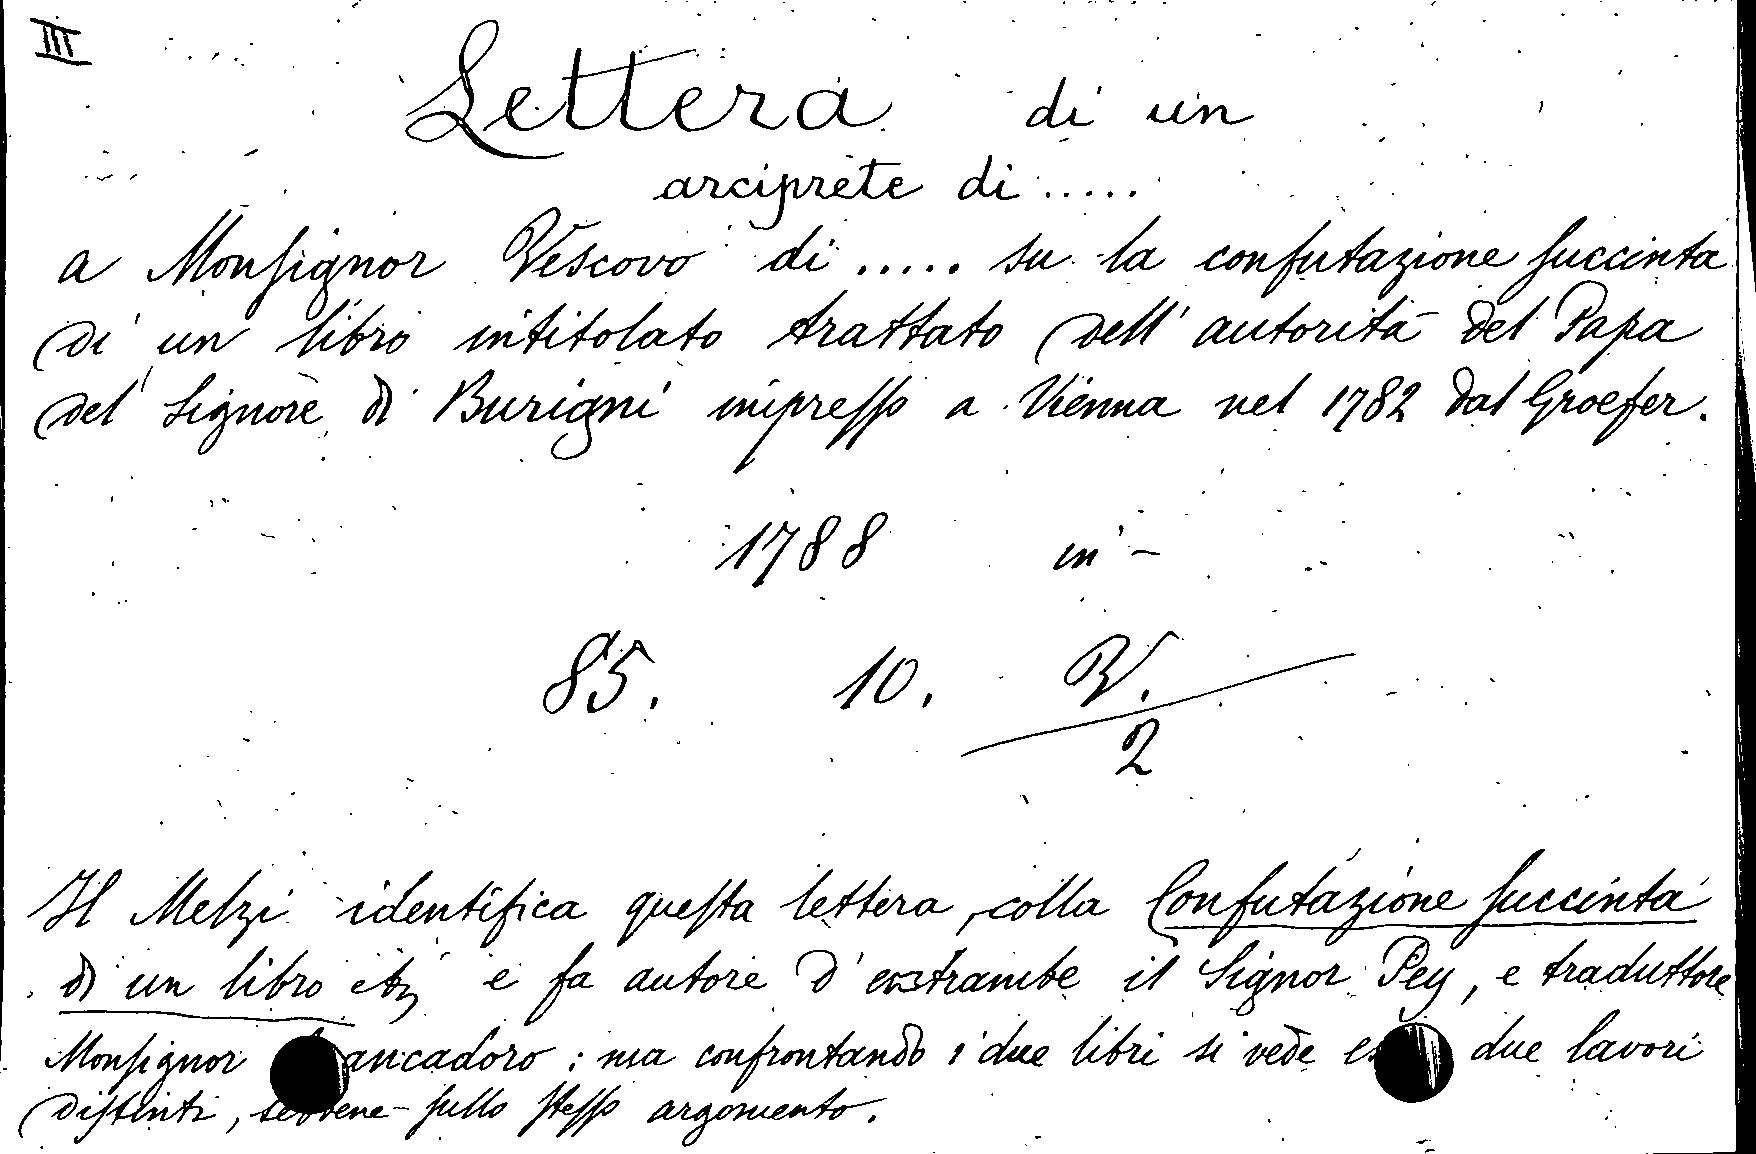 III
Lettera di un
arciprete di .....
a Monsignor Vescovo di ..... su la confutazione succinta
di un libro intitolato trattato dell'autorità del Papa
del Signore di Burigni impresso a Vienna nel 1782 dal Groefer.
1788 in -
85. 10. V.
2
Il Melzi identifica questa lettera colla Confutazione succinta
di un libro etc e fa autore d'entrambe il Signor Pey, e traduttore
Monsignor ancadoro : ma confrontando i due libri si vede due lavori
distinti, sebbene sullo stesso argomento.